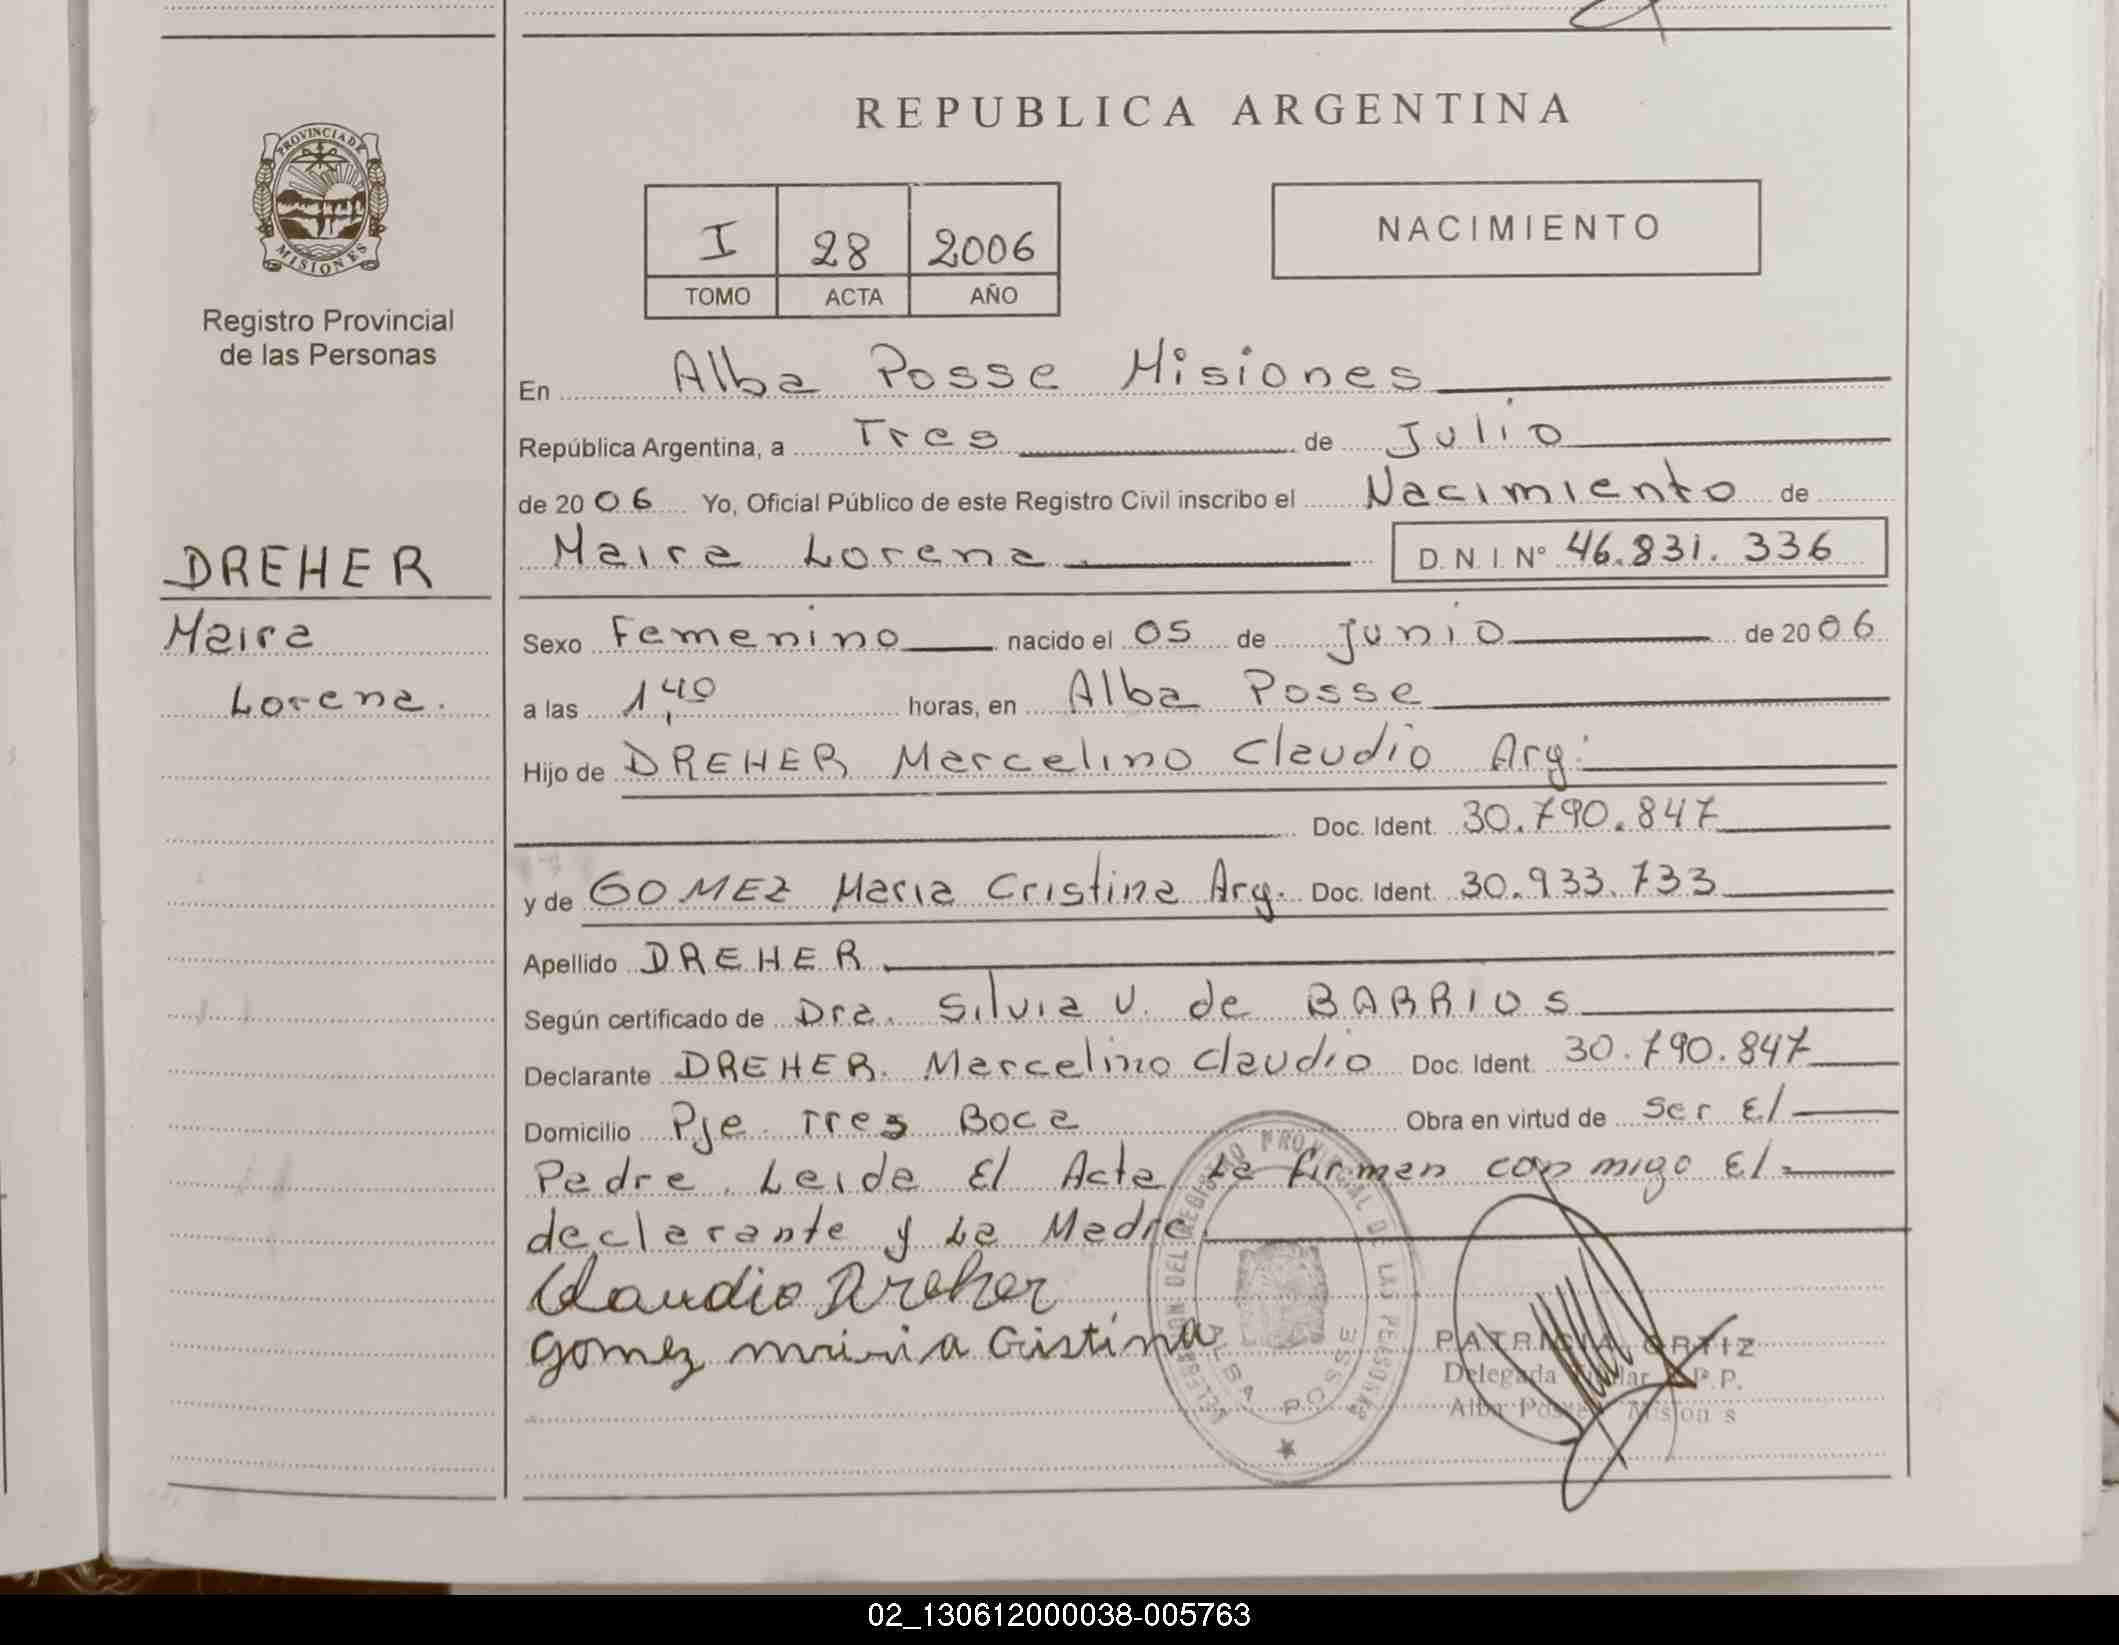 REPUBLICA ARGENTINA
PROVINCIA DE
MISIONES
Registro Provincial
de las Personas
I 28 2006
TOMO ACTA AÑO
NACIMIENTO
En Alba Posse Misiones
República Argentina, a Tres de Julio
de 2006 Yo, Oficial Público de este Registro Civil inscribo el Nacimiento de
Maira Lorena D.N.I. N° 46.831.336
DREHER
Maira
Lorena.
Sexo Femenino nacido el 05 de junio de 2006
a las 1,40 horas, en Alba Posse
Hijo de DREHER Marcelino Claudio Arg.
Doc. Ident. 30.790.847
y de GOMEZ Maria Cristina Arg. Doc. Ident. 30.933.733
Apellido DREHER
Según certificado de Dra. Silvia V. de BARRIOS
Declarante DREHER. Marcelino Claudio Doc. Ident. 30.790.847
Domicilio Pje Tres Boca Obra en virtud de ser El
Padre. Leida El Acta La firman con migo El
declarante y La Madre.
Claudio Dreher
Gomez maria Cristina
DELEGACION DEL REGISTRO PROVINCIAL DE LAS PERSONAS
ALBA POSSE
PATRICIA ORTIZ
Delegada Titular R.P.P.
Alba Posse Misiones
02_130612000038-005763